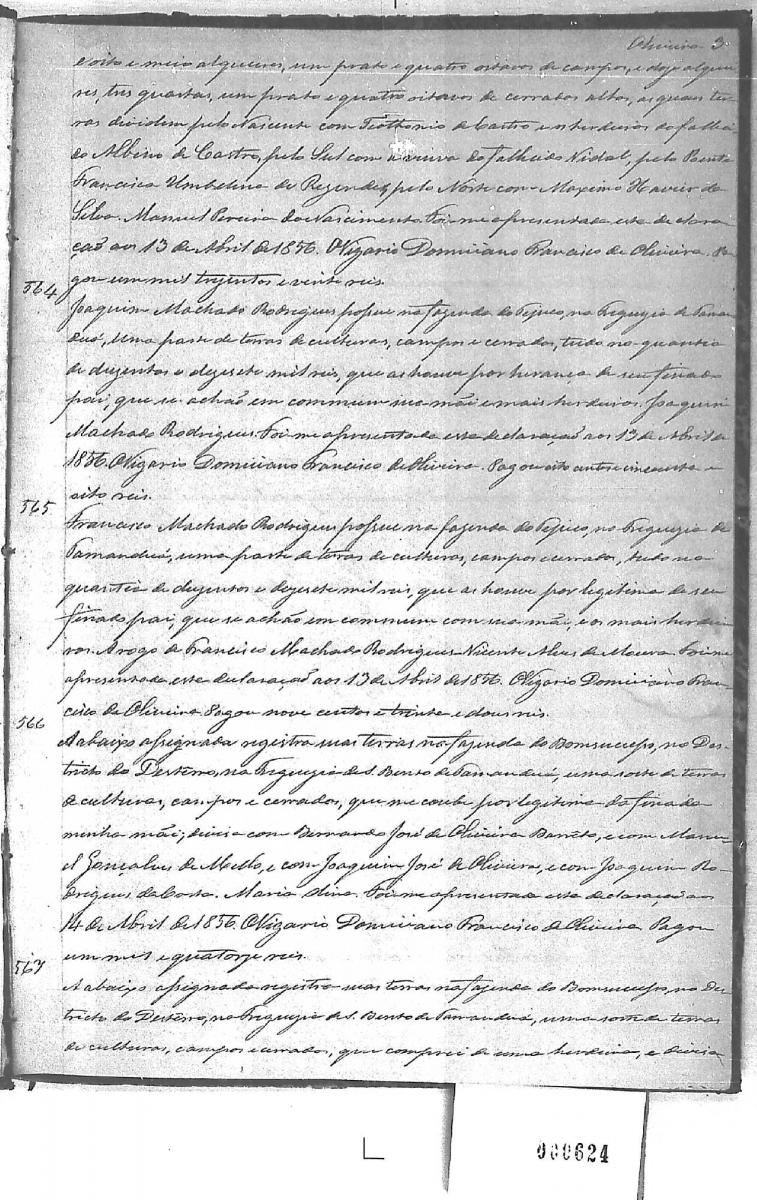 Oliveira 3
e oito e meio alqueires, um prato e quatro oitavos de campos, e doze alquei
res, tres quartas, um prato e quatro oitavos de cerrados altos, as quaes ter
ras dividem pelo Nascente com Teóttonio de Castro e os herdeiros do falleci
do Albino de Castro, pelo Sul com a viuva do falhecido Vidal, pelo Poente
Francisca Umbelina de Rezende, pelo Norte com Maximo Xavier da
Silva. Manuel Pereira do Nascimento. Foi-me apresentada esta declara
ção aos 13 de Abril de 1856. O Vigario Domiciano Francisco de Oliveira. Pa
gou um mil trezentos e vinte reis.
564
Joaquim Machado Rodrigues possue na fazenda do Tejuco, na Freguezia de Taman
duá, uma parte de terras de culturas, campos e cerrados, tudo na quantia
de duzentos e dezesete mil reis, que as houve por herança de seu finado
pai, que se achão em commum sua mãi e mais herdeiros. Joaquim
Machado Rodrigues. Foi-me apresentada esta declaração aos 13 de Abril de
1856. O Vigario Domiciano Francisco de Oliveira. Pagou oito centos e cincoenta e
oito reis.
565
Francisco Machado Rodrigues possue na fazenda do Tejuco, na Freguezia de
Tamanduá, uma parte de terras de culturas, campos e cerrados, tudo na
quantia de duzentos e dezesete mil reis, que as houve por legitima de seu
finado pai, que se achão em commum com sua mãi, e os mais herdei
ros. A rogo de Francisco Machado Rodrigues Vicente Alves de Moura. Foi-me
apresentada esta declaração aos 13 de Abril de 1856. O Vigario Domiciano Fran
cisco de Oliveira. Pagou nove centos e trinta e dous reis.
566
A abaixo assignada registra suas terras na fazenda do Bomsucesso, no Des-
tricto do Destêrro, na Freguezia de S. Bento de Tamanduá, uma sorte de terras
de culturas, campos e cerrados, que me coube por legitima da finada
minha mãi; divisa com Bernardo José de Oliveira Barrêto, e com Manu-
el Gonçalves de Mello, e com Joaquim José de Oliveira, e com Joaquim Ro-
drigues da Costa. Maria Dina. Foi-me apresentada esta declaração aos
14 de Abril de 1856. O Vigario Domiciano Francisco de Oliveira Pagou
um mil e quatorze reis.
567
A abaixo assignada registra suas terras na fazenda do Bomsucesso, no Des
tricto do Destêrro, na Freguezia de S. Bento de Tamanduá, uma sorte de terras
de culturas, campos e cerrados, que comprei de uma herdeira, e divisa
000624